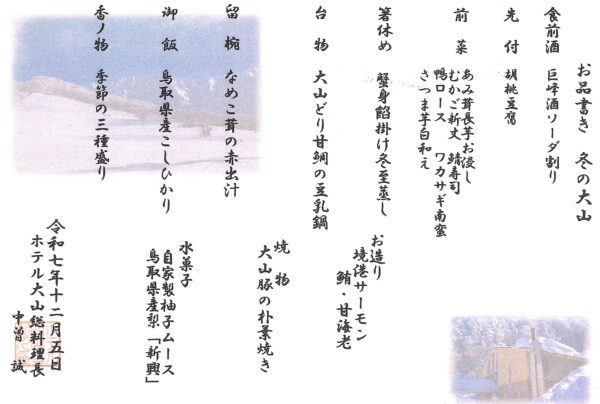 お品書き 冬の大山
食前酒 巨峰酒ソーダ割り
先付 胡桃豆腐
前菜 あみ茸長芋お浸し
むかご新丈 鯖寿司
鴨ロース ワカサギ南蛮
さつま芋白和え
箸休め 蟹身餡掛け冬至蒸し
お造り
境港サーモン
鮪・甘海老
台物 大山どり甘鯛の豆乳鍋
焼物
大山豚の朴葉焼き
留椀 なめこ茸の赤出汁
御飯 鳥取県産こしひかり
水菓子
自家製柚子ムース
鳥取県産梨「新興」
香ノ物 季節の三種盛り
令和七年十二月五日
ホテル大山総料理長
中曽 誠